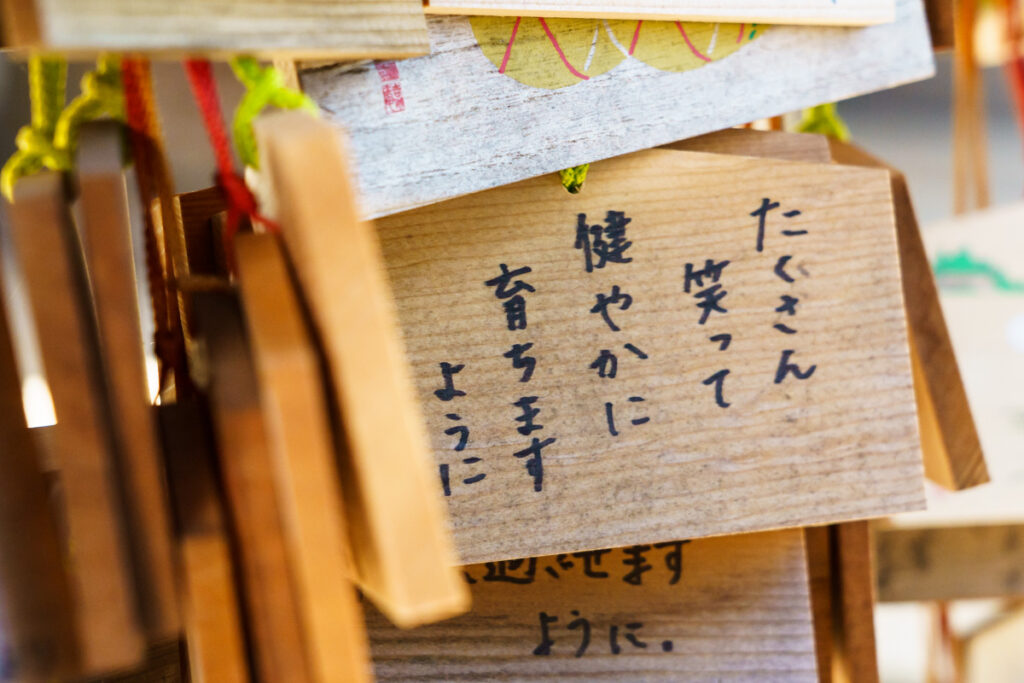 たくさん
笑って
健やかに
育ちます
ように
過ごせます
ように。